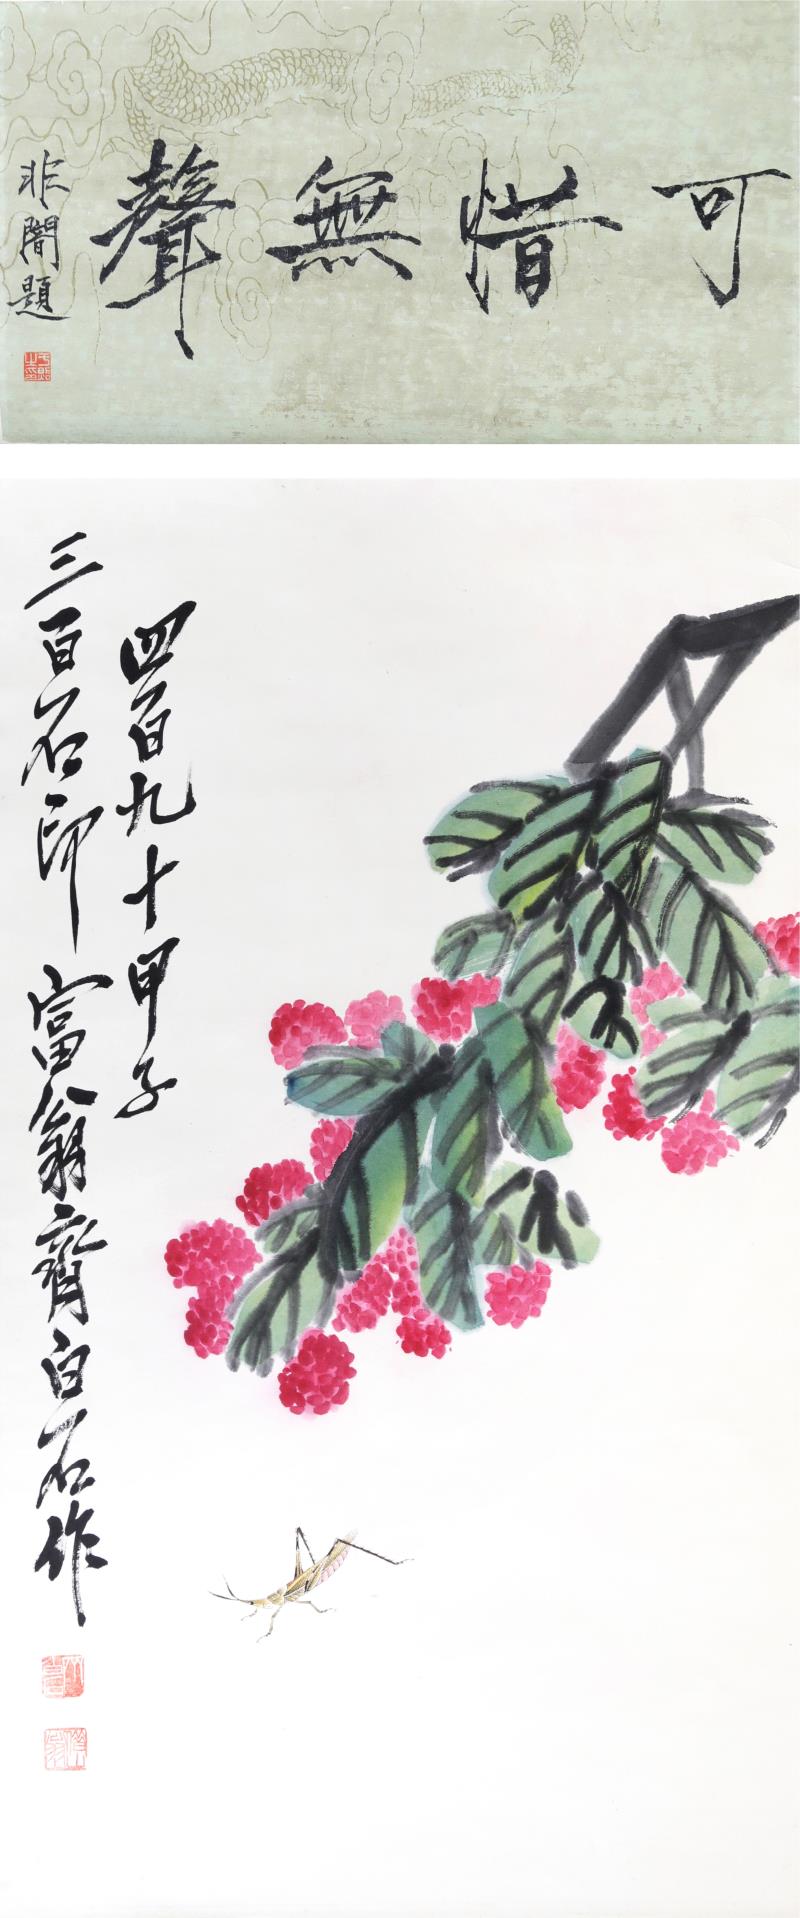 可惜無聲
非闇題
四百九十甲子
三百石印富翁齊白石作